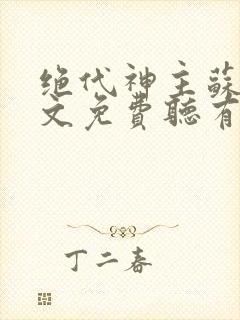 绝代神主蘇
文免費聽有
丁二春